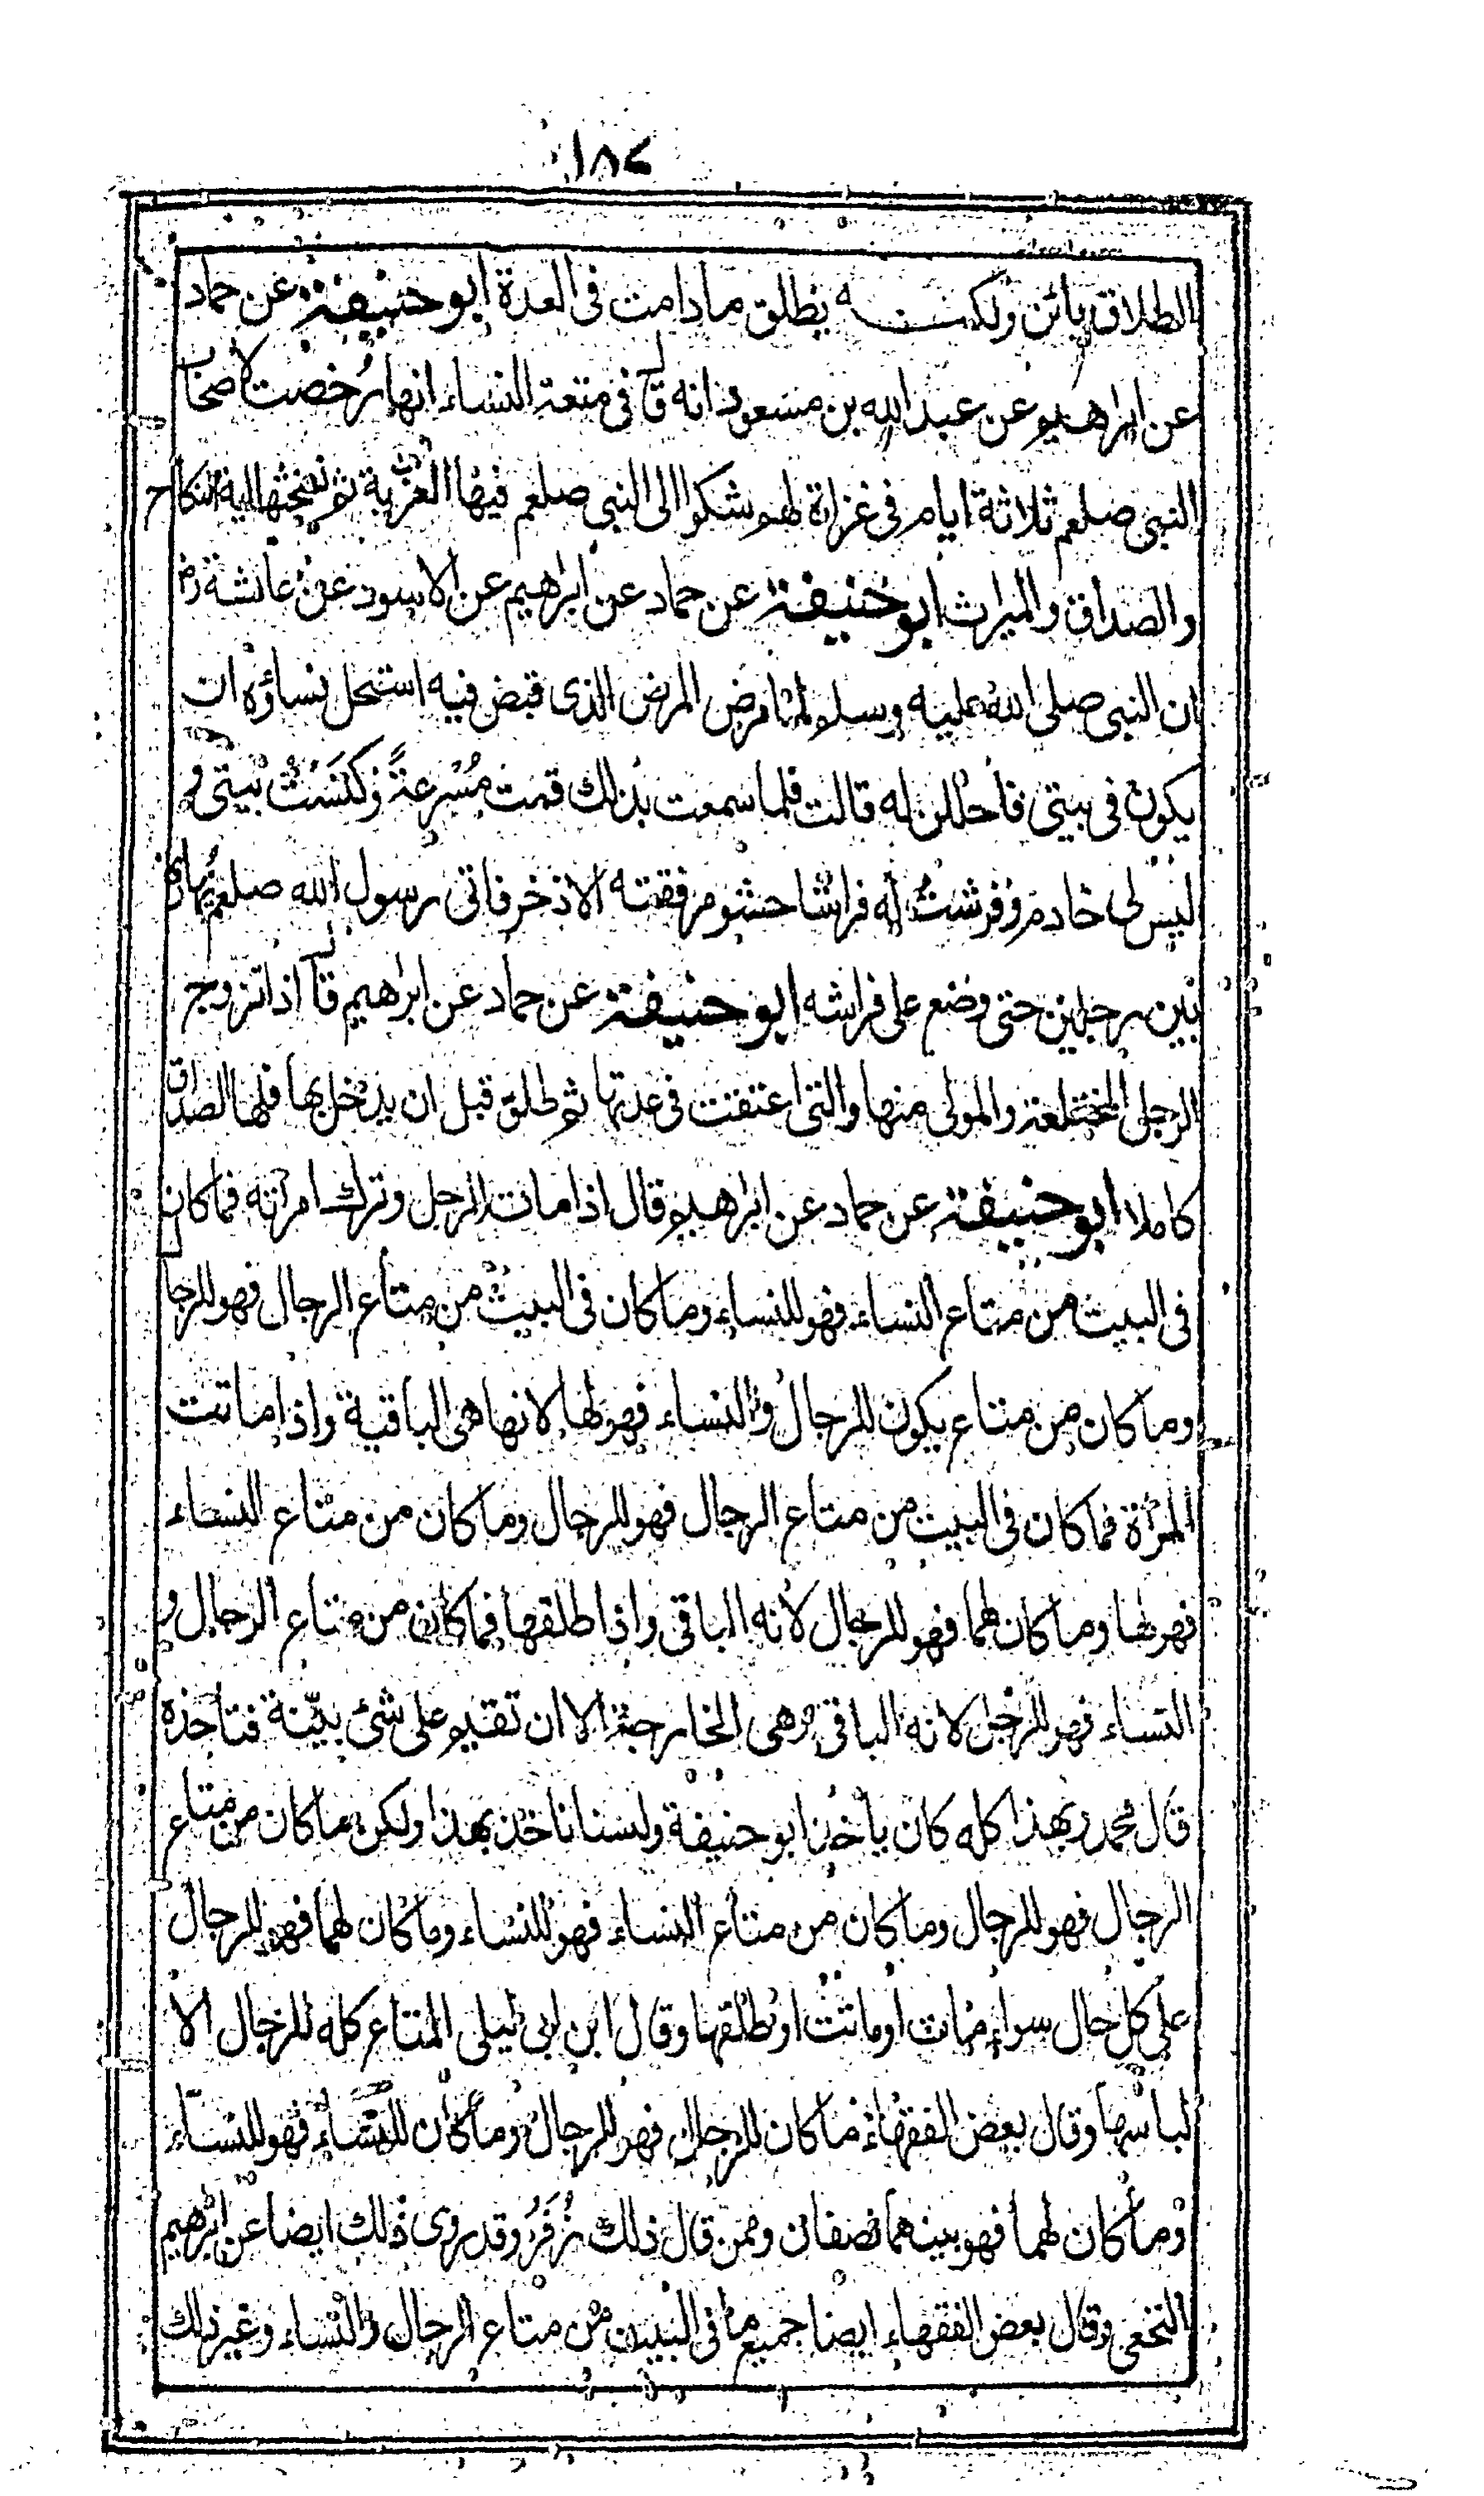 ١٨٧
الطلاق بائن ولكنه يطلق مادامت فى العدة ابوحنيفة عن حماد
عن ابراهيم عن عبدالله بن مسعود انه قال فى متعة النساء انها رخصت لاصحاب
النبى صلعم ثلاثة ايام فى غزاة لهم شكوا الى النبى صلعم فيها العزبة ثم نسختها اية النكاح
والصداق والميراث ابوحنيفة عن حماد عن ابراهيم عن الاسود عن عائشة رض
ان النبى صلى الله عليه وسلم لما مرض المرض الذى قبض فيه استحل نساؤه ان
يكون فى بيتى فأحللن له قالت فلما سمعت بذلك قمت مُسْرِعةً فكَنَسْتُ بيتى و
ليس لى خادم وفرشتُ له فراشا حشو مرفقته الاذخر فاتى رسول الله صلعم يهادى
بين رجلين حتى وضع على فراشه ابوحنيفة عن حماد عن ابراهيم قال اذا تزوج
الرجل المختلعة والمولى منها والتى اعتقت فى عدتها ثم طلق قبل ان يدخل بها فلها الصداق
كاملا ابوحنيفة عن حماد عن ابراهيم قال اذا مات الرجل وترك امرأته فما كان
فى البيت من متاع النساء فهو للنساء وما كان فى البيت من متاع الرجال فهو للرجال
وما كان من متاع يكون للرجال والنساء فهو لها لانها هى الباقية واذا ماتت
المرأة فما كان فى البيت من متاع الرجال فهو للرجال وما كان من متاع النساء
فهو لها وما كان لهما فهو للرجال لانه الباقى واذا طلقها فما كان من متاع الرجال و
النساء فهو للرجل لانه الباقى وهى الخارجة الا ان تقيم على شئ بيّنة فتأخذه
قال محمد وبهذا كله كان يأخذ ابو حنيفة ولسنا ناخذ بهذا ولكن ما كان من متاع
الرجال فهو للرجال وما كان من متاع النساء فهو للنساء وما كان لهما فهو للرجال
على كل حال سواء مات او ماتت او طلقها وقال ابن ابى ليلى المتاع كله للرجال الا
لباسها وقال بعض الفقهاء ما كان للرجال فهو للرجال وما كان للنساء فهو للنساء
وما كان لهما فهو بينهما نصفان وممن قال ذلك زُفَرُ وقد روى ذلك ايضا عن ابرهيم
النخعى وقال بعض الفقهاء ايضا جميع ما فى البيت من متاع الرجال والنساء وغير ذلك